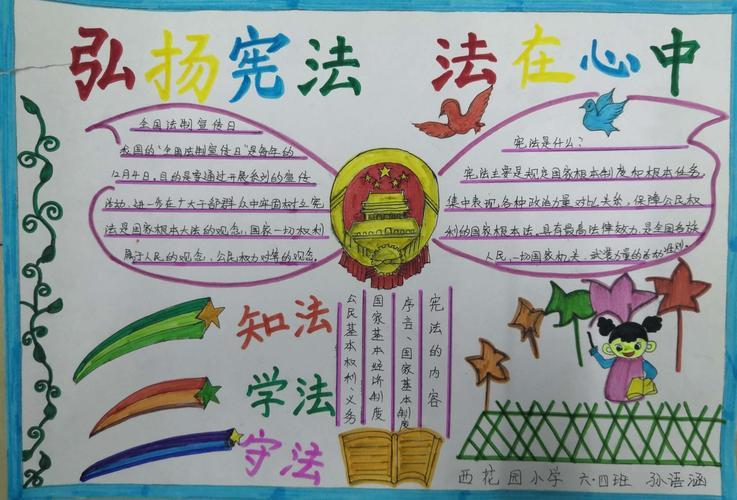 弘扬宪法 法在心中
全国法制宣传日
我国的"全国法制宣传日"是每年的
12月4日,目的是要通过开展系列的宣传
活动,进一步在广大干部群众中牢固树立宪
法是国家根本大法的观念,国家一切权利
属于人民的观念,公民权力对等的观念。
宪法是什么?
宪法主要是规定国家根本制度和根本任务。
集中表现,各种政治力量对比关系,保障公民权
利的国家根本法。具有最高法律效力,是全国各族
人民,一切国家机关、武装力量的活动准则。
宪法的内容
序言、国家基本制度
国家基本经济制度
公民基本权利、义务
知法
学法
守法
西花园小学 六·四班 孙语涵